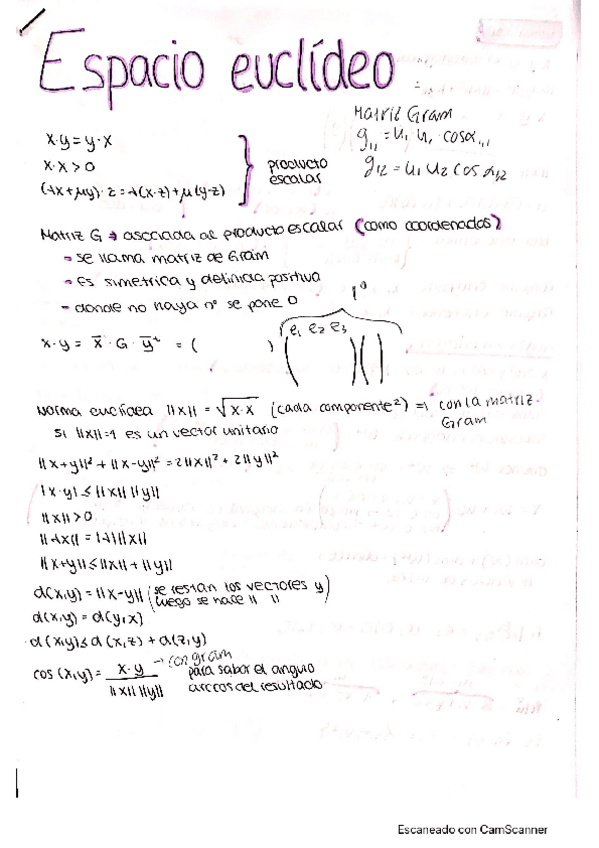 Espacio euclídeo
Matriz Gram
g₁₁ = u₁ u₁ · cos α₁,₁
g₁₂ = u₁ u₂ cos α₁₂
x·y = y·x
x·x > 0
(λx + μy)·z = λ(x·z) + μ(y·z)
producto
escalar
Matriz G → asociada al producto escalar (como coordenadas)
- se llama matriz de Gram
- Es simetrica y definida positiva
- donde no haya nº se pone 0
1º
e₁ e₂ e₃
x·y = x̄ · G · ȳᵗ = ( ) ( )( )( )
Norma euclídea ||x|| = √x·x (cada componente²) => con la matriz
Gram
Si ||x||=1 es un vector unitario
||x+y||² + ||x-y||² = 2||x||² + 2||y||²
|x·y| ≤ ||x|| ||y||
||x|| > 0
||λx|| = |λ| ||x||
||x+y|| ≤ ||x|| + ||y||
d(x,y) = ||x-y|| (se restan los vectores y
luego se hace || ||)
d(x,y) = d(y,x)
d(x,y) ≤ d(x,z) + d(z,y)
cos(x,y) = x·y / ||x|| ||y|| → con gram
para sabar el angulo
arccos del resultado
Escaneado con CamScanner